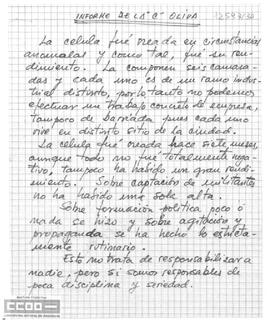 INFORME DE LA "C" OLIVA
La celula fué creada en circunstancias
anomalas y como tal, fué su ren-
dimiento. La componen seis camara-
das y cada uno es de un ramo indus-
trial distinto, por lo tanto no podemos
efectuar un trabajo concreto de empresa,
tampoco de barriada pues cada uno
vive en distinto sitio de la ciudad.
La celula fué creada hace siete meses,
aunque todo no fué totalmente nega-
tivo, tampoco ha habido un gran rendi-
miento. Sobre captación de militantes
no ha habido una sola alta.
Sobre formación política poco ó
nada se hizo y sobre agitación y
propaganda se ha hecho lo estricta-
mente rutinario.
Esto no trata de responsabilizar a
nadie, pero si somos responsables de
poca disciplina y seriedad.
CCOO